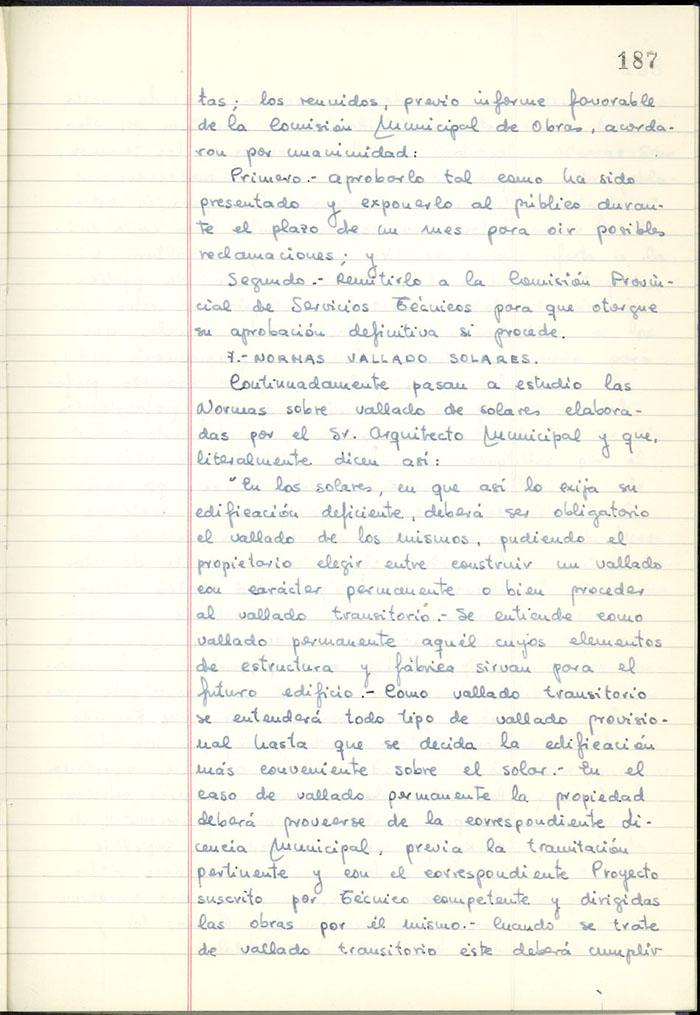 187
tas; los reunidos, previo informe favorable
de la Comisión Municipal de Obras, acorda-
ron por unanimidad:
Primero.- aprobarlo tal como ha sido
presentado y exponerlo al público duran-
te el plazo de un mes para oir posibles
reclamaciones; y
Segundo.- Remitirlo a la Comisión Provin-
cial de Servicios Técnicos para que otorgue
su aprobación definitiva si procede.
7.- NORMAS VALLADO SOLARES.
Continuadamente pasan a estudio las
Normas sobre vallado de solares elabora-
das por el Sr. Arquitecto Municipal y que,
literalmente dicen así:
"En los solares, en que así lo exija su
edificación deficiente, deberá ser obligatorio
el vallado de los mismos, pudiendo el
propietario elegir entre construir un vallado
con carácter permanente o bien proceder
al vallado transitorio.- Se entiende como
vallado permanente aquél cuyos elementos
de estructura y fábrica sirvan para el
futuro edificio.- Como vallado transitorio
se entenderá todo tipo de vallado provisio-
nal hasta que se decida la edificación
más conveniente sobre el solar.- En el
caso de vallado permanente la propiedad
deberá proveerse de la correspondiente Li-
cencia Municipal, previa la tramitación
pertinente y con el correspondiente Proyecto
suscrito por Técnico competente y dirigidas
las obras por él mismo.- Cuando se trate
de vallado transitorio éste deberá cumplir